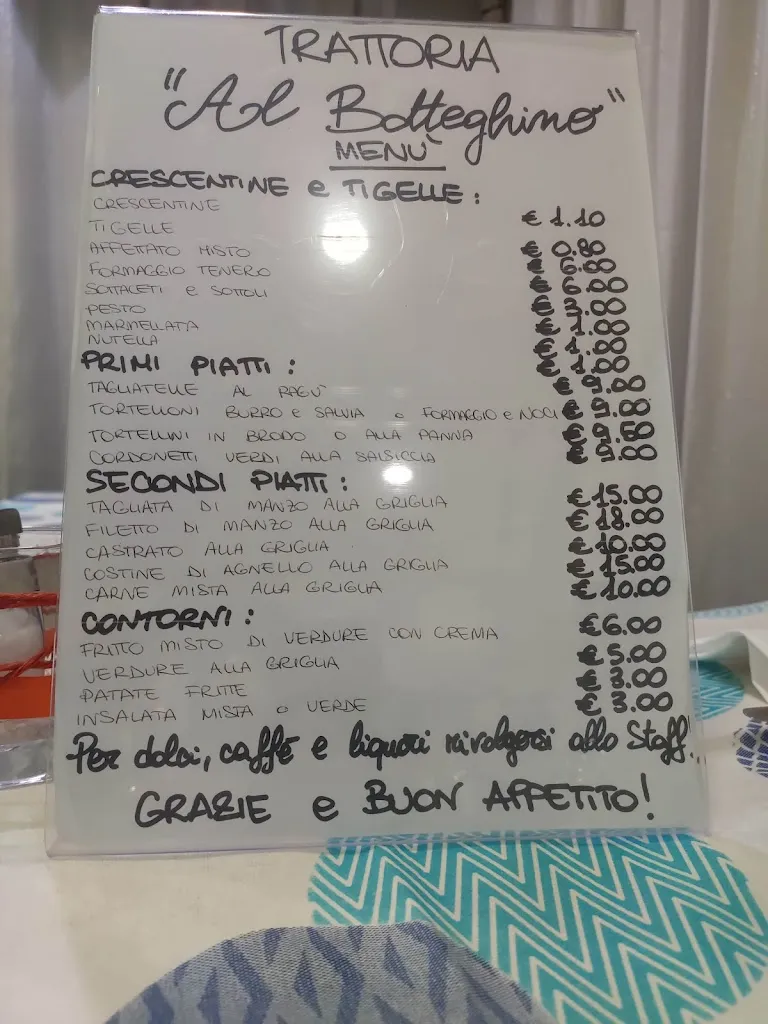 TRATTORIA
"Al Botteghino"
MENÙ
CRESCENTINE e TIGELLE:
CRESCENTINE € 1.10
TIGELLE € 0.80
AFFETTATO MISTO € 6.00
FORMAGGIO TENERO € 6.00
SOTTACETI e SOTTOLI € 3.00
PESTO € 1.00
MARMELLATA € 1.00
NUTELLA € 1.00
PRIMI PIATTI:
TAGLIATELLE AL RAGU' € 9.00
TORTELLONI BURRO e SALVIA o FORMAGGIO e NOCI € 9.00
TORTELLINI IN BRODO O ALLA PANNA € 9.50
CORDONETTI VERDI ALLA SALSICCIA € 9.00
SECONDI PIATTI:
TAGLIATA DI MANZO ALLA GRIGLIA € 15.00
FILETTO DI MANZO ALLA GRIGLIA € 18.00
CASTRATO ALLA GRIGLIA € 10.00
COSTINE DI AGNELLO ALLA GRIGLIA € 15.00
CARNE MISTA ALLA GRIGLIA € 10.00
CONTORNI:
FRITTO MISTO DI VERDURE CON CREMA € 6.00
VERDURE ALLA GRIGLIA € 5.00
PATATE FRITTE € 3.00
INSALATA MISTA o VERDE € 3.00
Per dolci, caffè e liquori rivolgersi allo Staff!..
GRAZIE e BUON APPETITO!